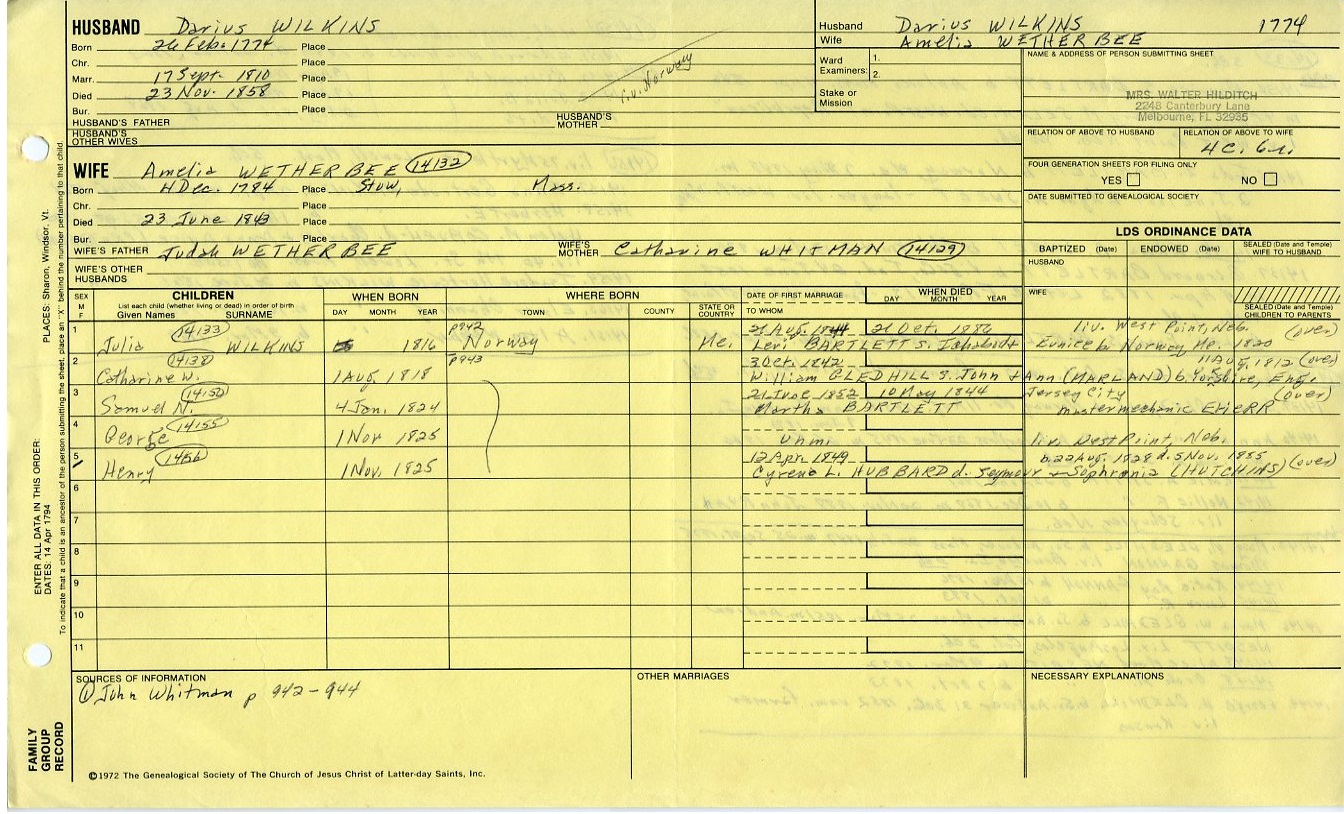 HUSBAND Darius WILKINS
Born 26 Feb. 1774 Place
Chr. Place
Marr. 17 Sept. 1810 Place
Died 23 Nov. 1858 Place
Bur. Place
liv. Norway
HUSBAND'S FATHER
HUSBAND'S MOTHER
HUSBAND'S OTHER WIVES
Husband Darius WILKINS 1774
Wife Amelia WETHERBEE
Ward 1.
Examiners: 2.
Stake or Mission
NAME & ADDRESS OF PERSON SUBMITTING SHEET
MRS. WALTER HILDITCH
2248 Canterbury Lane
Melbourne, FL 32935
RELATION OF ABOVE TO HUSBAND RELATION OF ABOVE TO WIFE
4C. 6r.
FOUR GENERATION SHEETS FOR FILING ONLY
YES NO
DATE SUBMITTED TO GENEALOGICAL SOCIETY
WIFE Amelia WETHERBEE 14132
Born 4 Dec. 1784 Place Stow, Mass.
Chr. Place
Died 23 June 1843 Place
Bur. Place
WIFE'S FATHER Judah WETHERBEE WIFE'S MOTHER Catharine WHITMAN 14129
WIFE'S OTHER HUSBANDS
LDS ORDINANCE DATA
BAPTIZED (Date) ENDOWED (Date) SEALED (Date and Temple) WIFE TO HUSBAND
HUSBAND
WIFE
SEALED (Date and Temple) CHILDREN TO PARENTS
SEX M F
CHILDREN
List each child (whether living or dead) in order of birth
Given Names SURNAME
WHEN BORN
DAY MONTH YEAR
WHERE BORN
TOWN COUNTY STATE OR COUNTRY
DATE OF FIRST MARRIAGE
TO WHOM
WHEN DIED
DAY MONTH YEAR
1 14133 p942 21 Aug. 1844 21 Oct. 1886 liv. West Point, Neb. (over)
Julia WILKINS 1816 Norway Me. Levi BARTLETT s. Ichabod + Eunice b. Norway Me. 1820
2 14138 p943 3 Oct. 1842 11 Aug. 1812 (over)
Catharine W. 1 Aug. 1818 William GLEDHILL s. John + Ann (MARLAND) b. Yorkshire, Eng.
3 14150 21 June 1852 10 May 1844 Jersey City (over)
Samuel N. 4 Jan. 1824 Martha BARTLETT mastermechanic Erie RR
4 14155
George 1 Nov 1825 unm. liv. West Point, Neb.
5 1456 12 Apr. 1849 b. 22 Aug. 1828 d. 5 Nov. 1855 (over)
Henry 1 Nov. 1825 Cyrene L. HUBBARD d. Seymour + Sophronia (HUTCHINS)
6
7
8
9
10
11
SOURCES OF INFORMATION
① John Whitman p 942-944
OTHER MARRIAGES
NECESSARY EXPLANATIONS
©1972 The Genealogical Society of The Church of Jesus Christ of Latter-day Saints, Inc.
FAMILY GROUP RECORD
ENTER ALL DATA IN THIS ORDER:
DATES: 14 Apr 1794
PLACES: Sharon, Windsor, Vt.
To indicate that a child is an ancestor of the person submitting the sheet, place an "X" behind the number pertaining to that child.